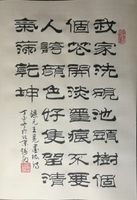 我家洗硯池頭樹個
個花開淡墨痕不要
人誇顏色好隻留清
氣滿乾坤
錄元王冕墨梅詩